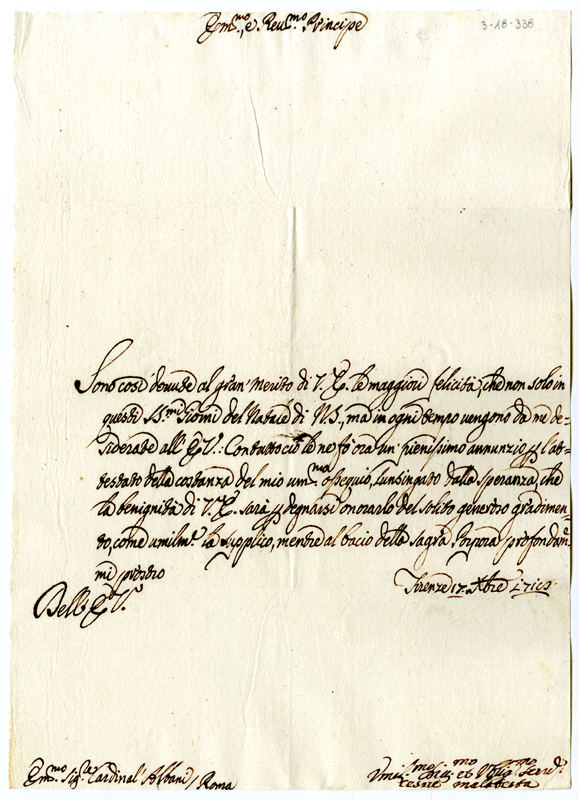 Em.mo, e Reu.mo Principe
3-18-338
Sono così douute al gran merito di V. E. le maggiori felicità, che non solo in
questi SS.mi Giorni del Natale di N. S., ma in ogni tempo vengono da me de-
siderate all' E. V.: Contuttociò le ne fò ora un pienissimo annunzio p l'at-
testato della costanza del mio um.mo ossequio, lusingato dalla speranza, che
la benignità di V. E. sarà p degnarsi onorarlo del solito generoso gradimen-
to, come umilm.e la supplico, mentre al bacio della Sagra Porpora profondam.
mi prostro
Firenze 17. Xbre
Dell' E. V.
Em.mo Sig.re Cardinal' Albani / Roma
Vmil.mo Diuo.mo et Oblig.mo Seru.e
Malatesta